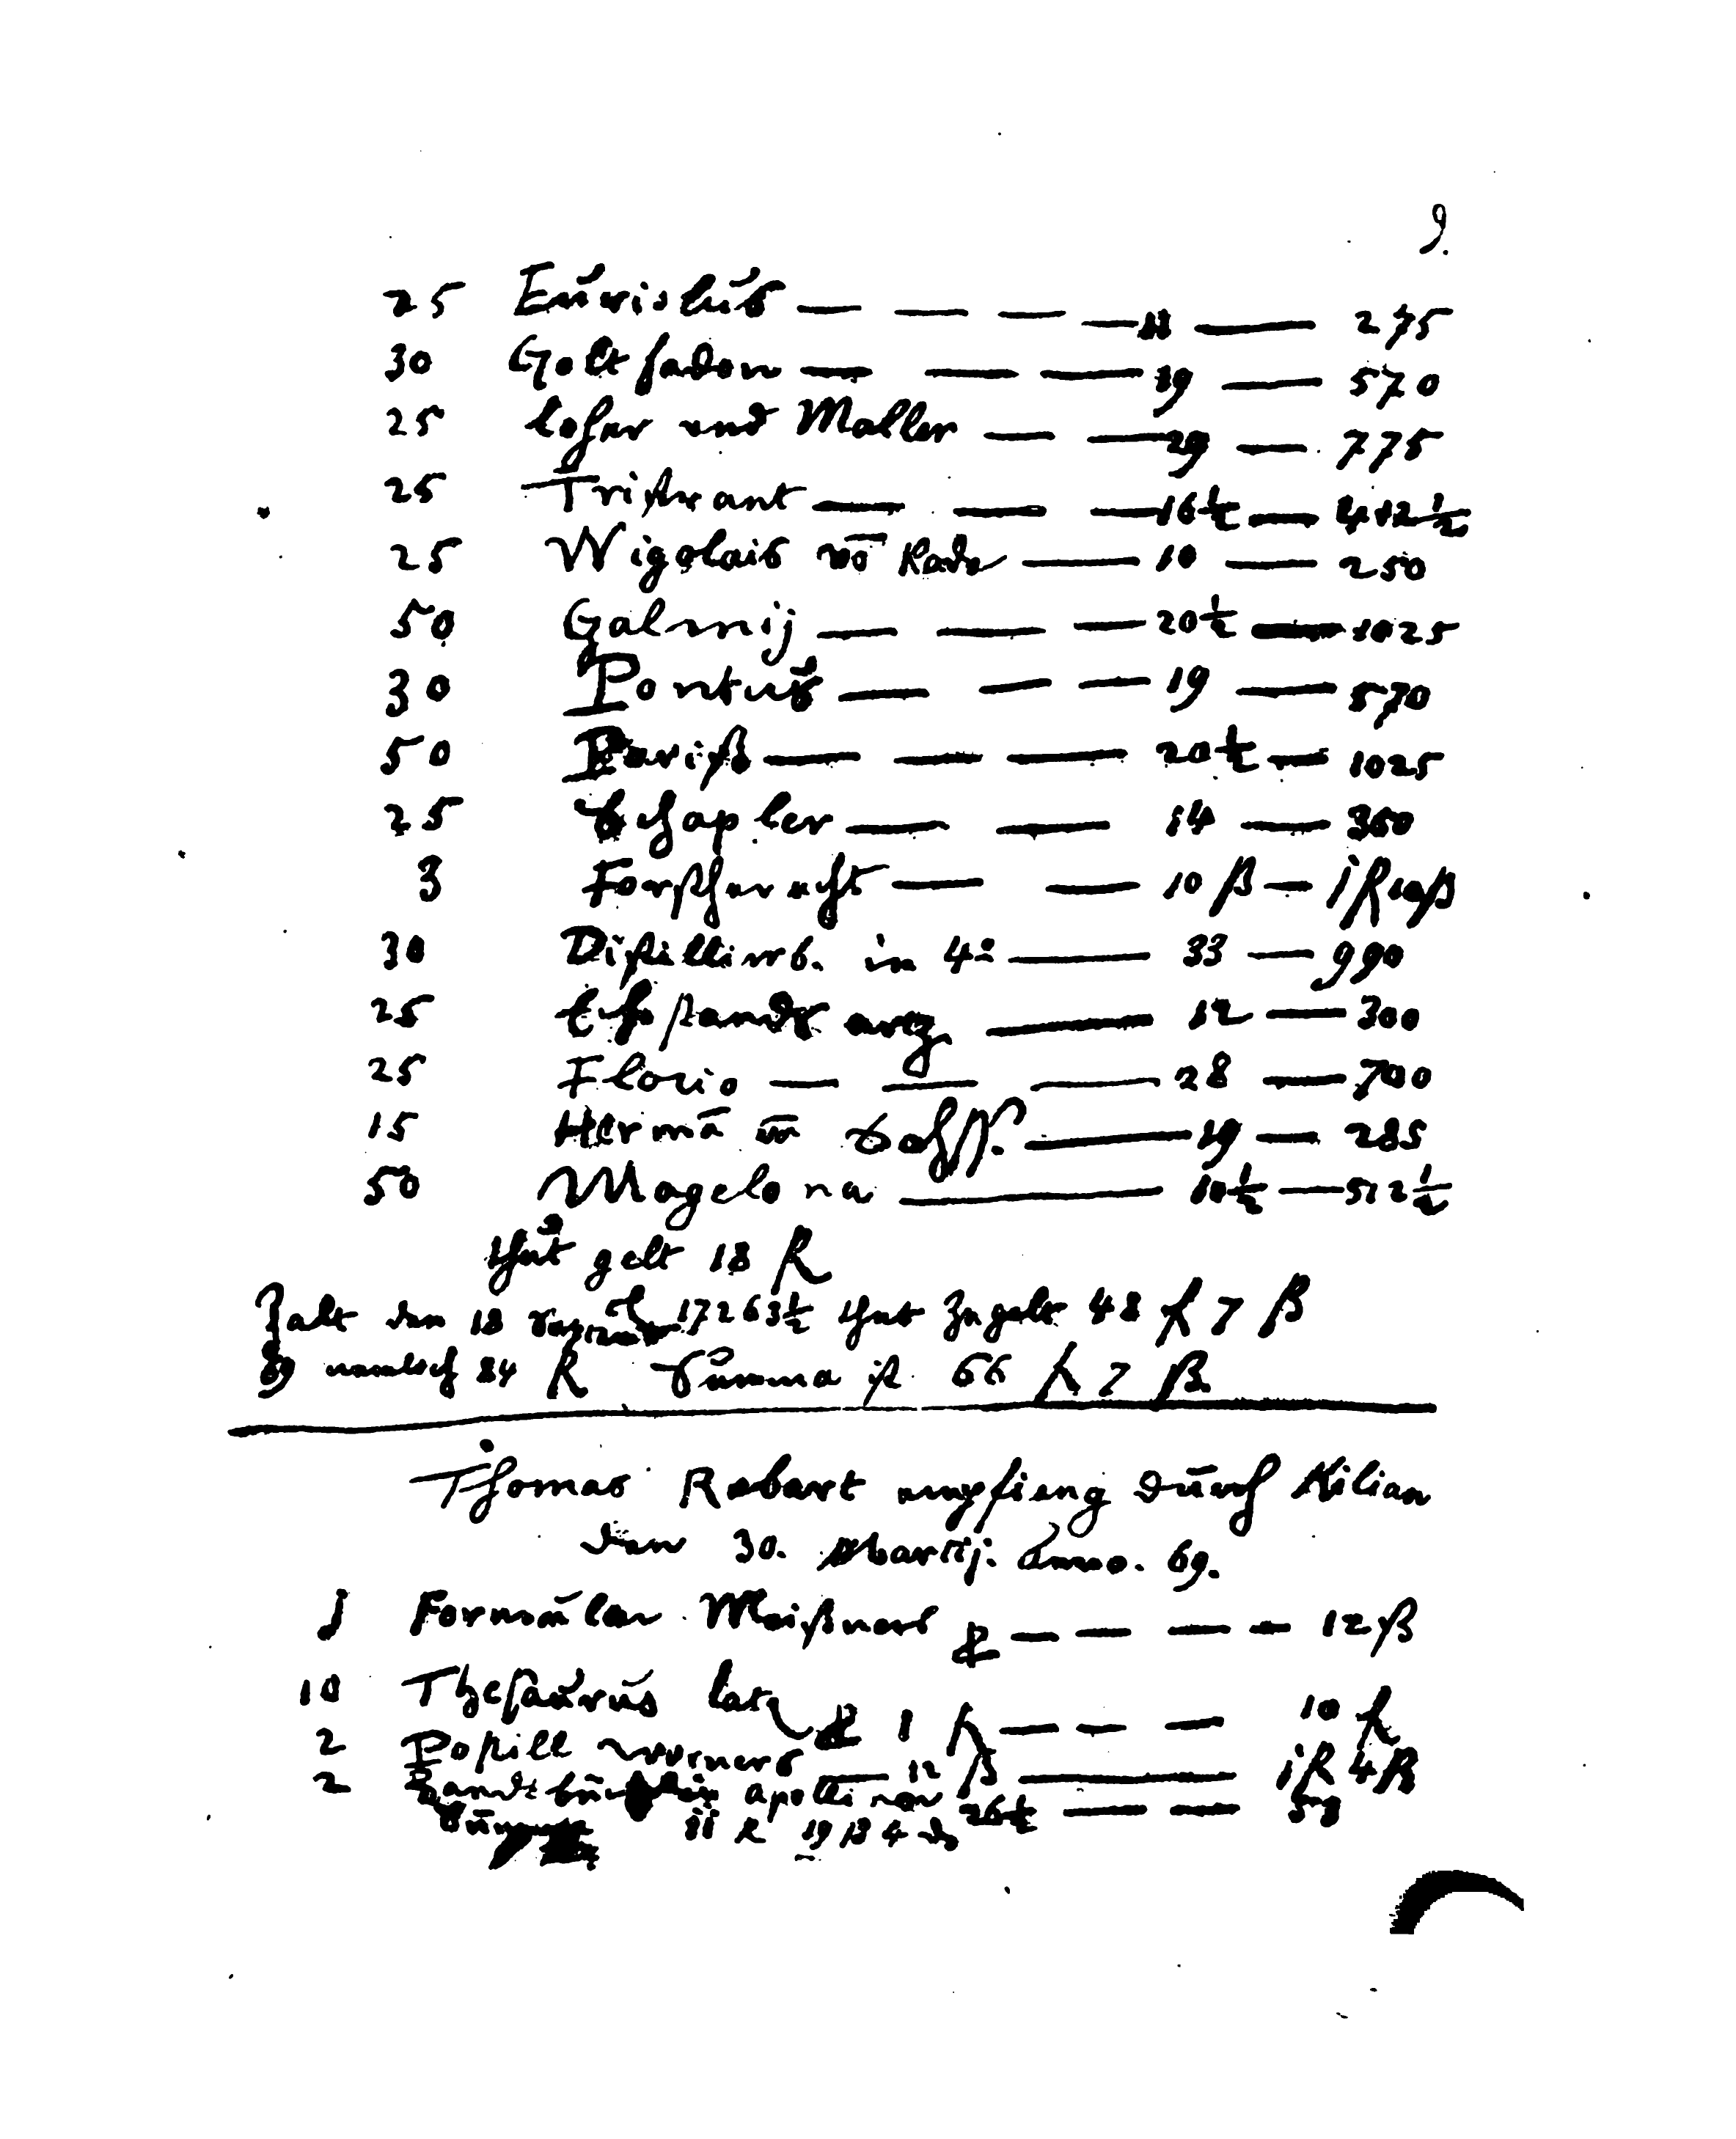 9.
25 Euriolus — — — — 11 — 275
30 Goltfaden — — — 19 — 570
25 Loher und Maller — — 29 — 775
25 Tristrant — — — 16½ — 412½
25 Wigolais vō Rade — 10 — 250
50 Galmij — — — 20½ — 1025
30 Pontus — — — 19 — 570
50 Pariß — — — 20½ — 1025
25 Schapler — — 14 — 350
3 Forstrecht — — 10 ß — i fl 10 ß
30 Distillirb. in 4º — 33 — 990
25 Ehstandt arz — 12 — 300
25 Florio — — — 28 — 700
15 Hermā — 19 — 285
50 Magelona — 10½ — 512½
thut gelt 18 fl
Zalt den 18 17263½ thut zu gelt 48 fl 7 ß
69 nemlich 84 fl Summa ist 66 fl 7 ß
Thomas Rebart empfieng durch Kilian
den 30. Martij. Anno. 69.
j Formular Meißners — — — — 12 ß
10 Thesaurus 1 fl — — — 10 fl
2 Postill 12 ß — i fl 4 ß
2 Handtbüchlin apollinar 26½ — — 53
19 ß 4 d